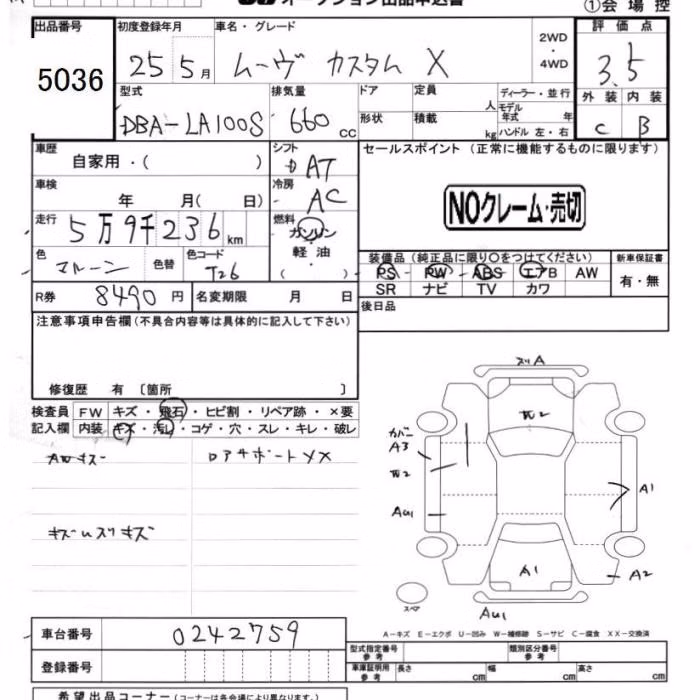 オークション出品申込書 ①会場控
出品番号 初度登録年月 車名・グレード 2WD・4WD 評価点
5036 25 5月 ムーヴ カスタム X 3.5
型式 排気量 ドア 定員 人 ディーラー・並行 モデル年式 年 外装 内装
DBA-LA100S 660 cc 形状 積載 kg ハンドル 左・右 C B
車歴 自家用・( ) シフト AT セールスポイント (正常に機能するものに限ります)
車検 年 月( 日) 冷房 AC
NOクレーム・売切
走行 5万9千236km 燃料 ガソリン・軽油・( )
色 マルーン 色替 色コード T26
装備品 (純正品に限り○をつけてください) 新車保証書
PS PW ABS エアB AW 有・無
SR ナビ TV カワ
R券 8490円 名変期限 月 日 後日品
注意事項申告欄 (不具合内容等は具体的に記入して下さい)
修復歴 有 〔箇所 〕
検査員 FW キズ・飛石・ヒビ割・リペア跡・×要
記入欄 内装 キズ・汚レ・コゲ・穴・スレ・キレ・破レ
AWキズ ロアサポートXX
スリA
W2
カバー
A3
W2
AU1 A1
A1 A2
スペア
AU1
A-キズ E-エクボ U-凹み W-補修跡 S-サビ C-腐食 XX-交換済
車台番号 0242759
型式指定番号 参考 類別区分番号 参考
登録番号 車庫証明用 参考 長さ cm 幅 cm 高さ cm
希望出品コーナー (コーナーは各会場により異なります。)